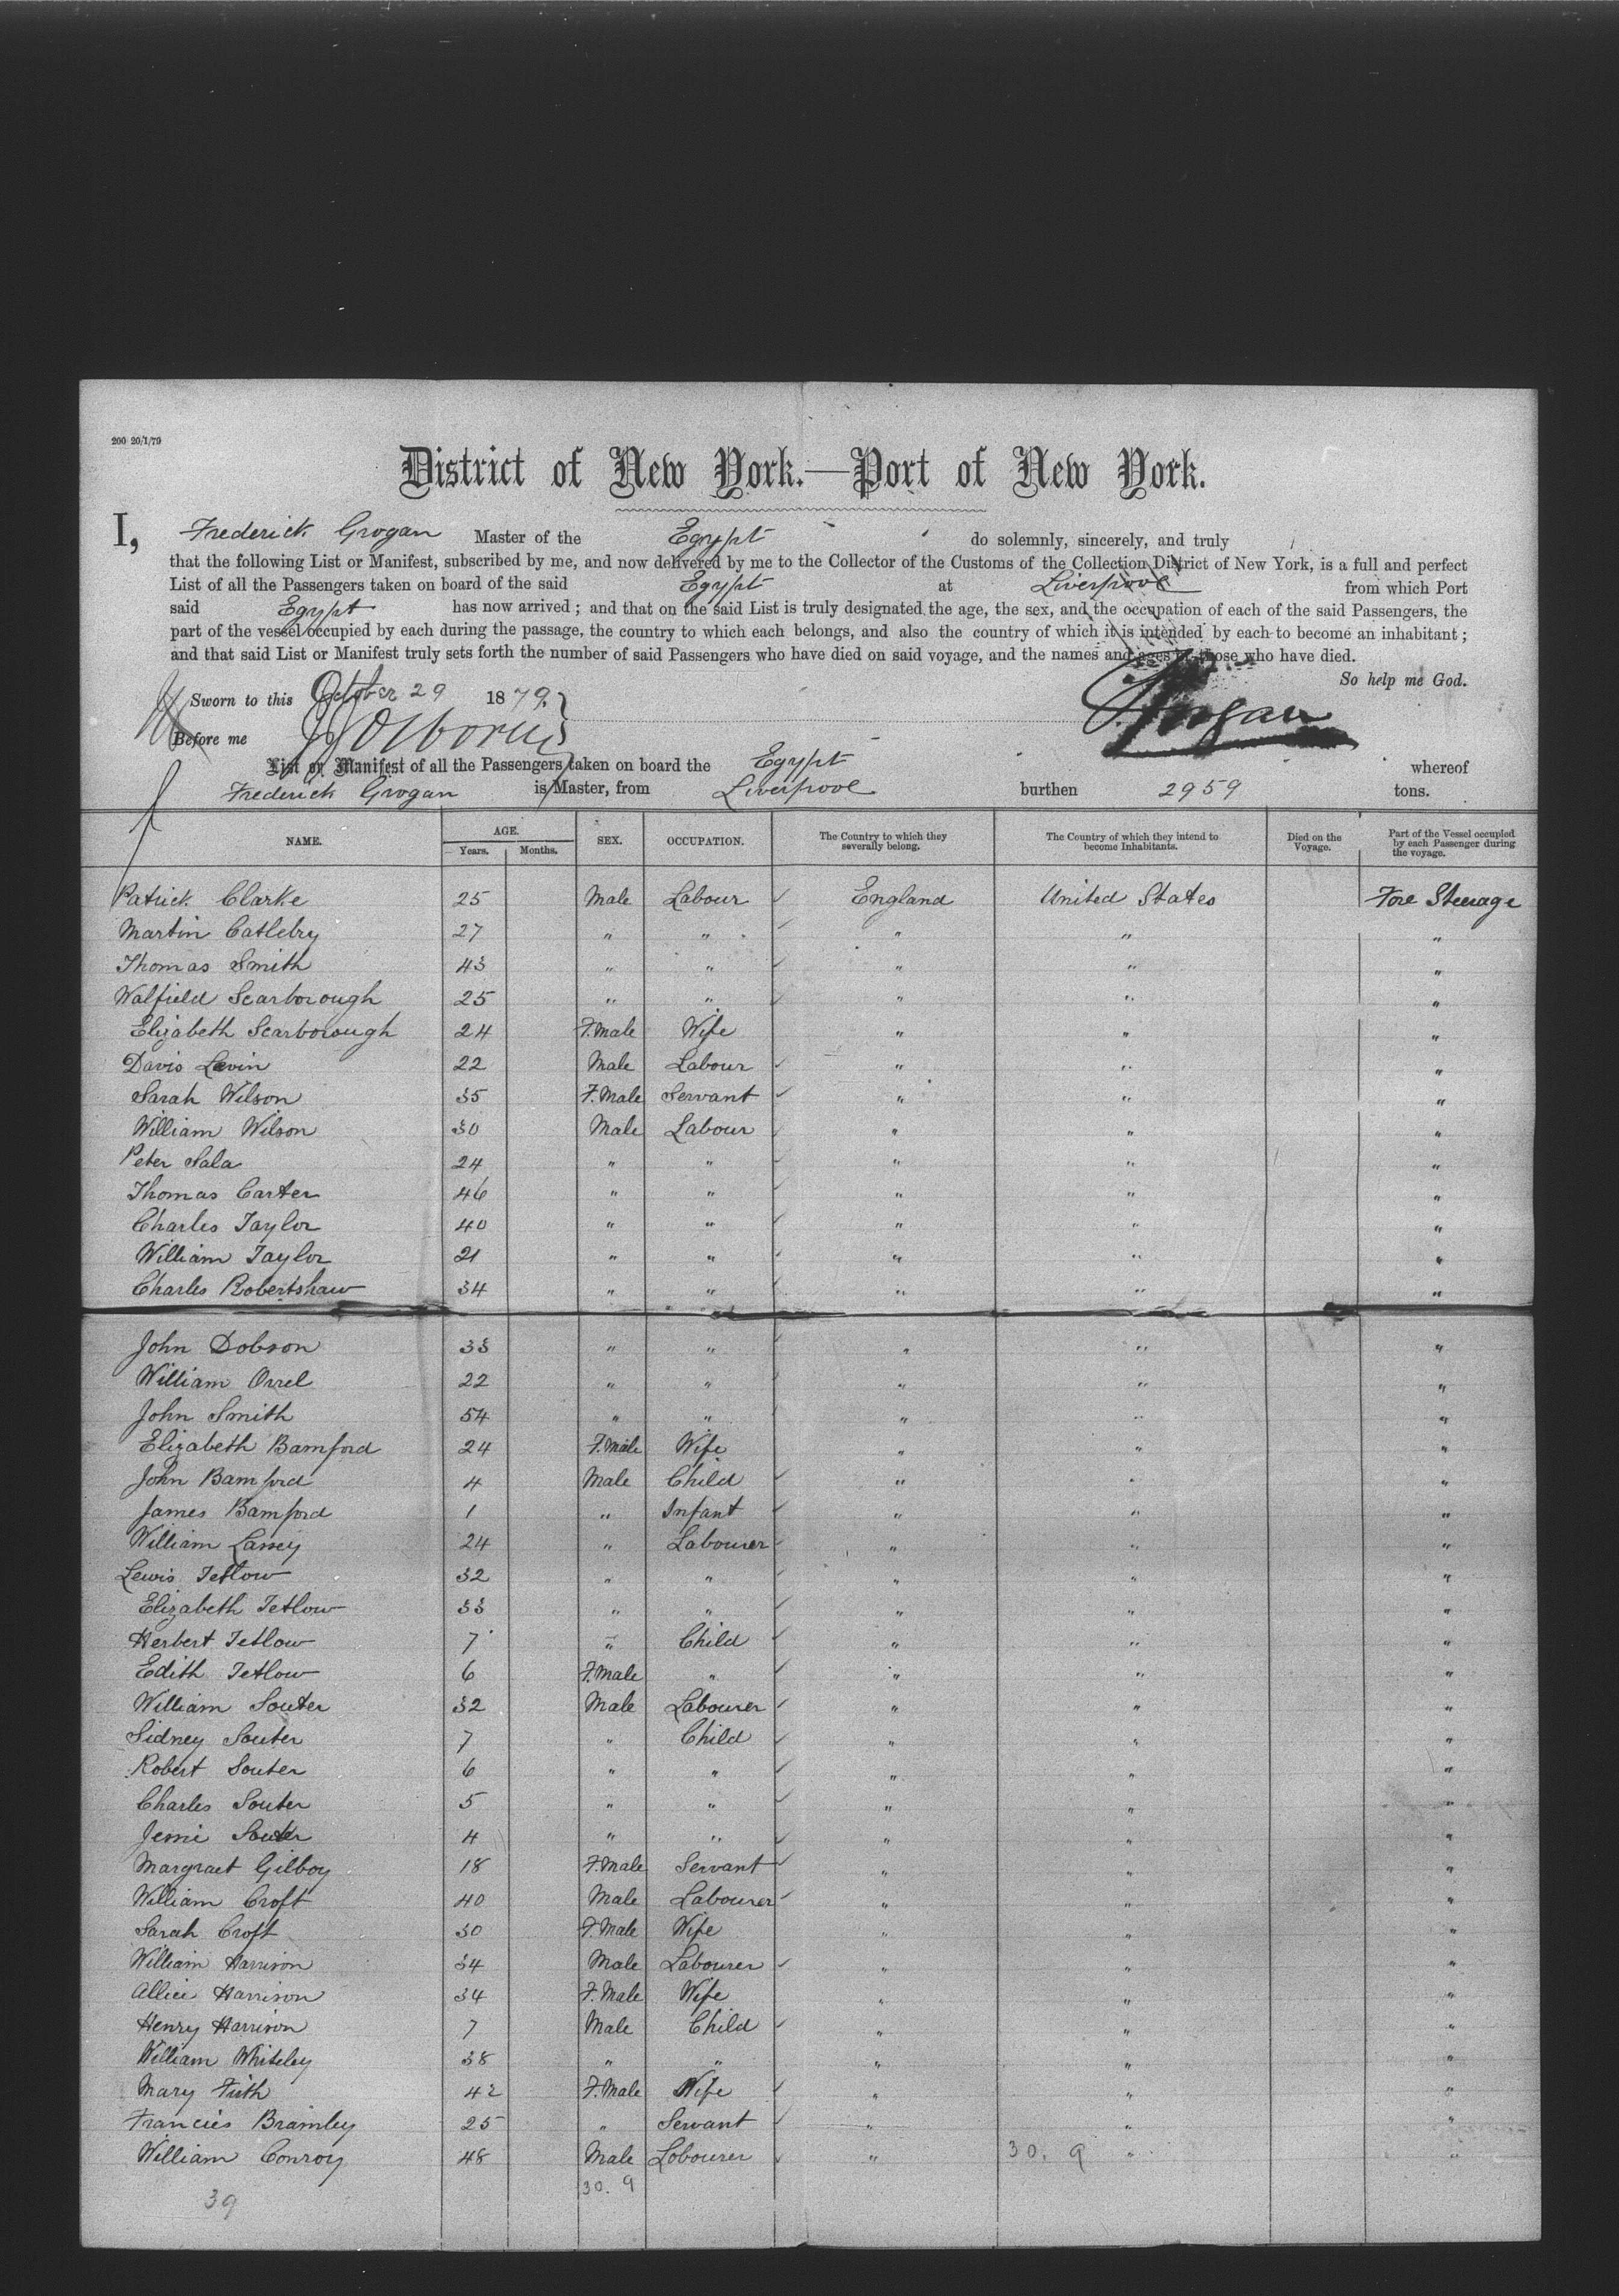 200 20/1/79
District of New York.—Port of New York.
I, Frederick Grogan Master of the Egypt do solemnly, sincerely, and truly
that the following List or Manifest, subscribed by me, and now delivered by me to the Collector of the Customs of the Collection District of New York, is a full and perfect
List of all the Passengers taken on board of the said Egypt at Liverpool from which Port
said Egypt has now arrived ; and that on the said List is truly designated the age, the sex, and the occupation of each of the said Passengers, the
part of the vessel occupied by each during the passage, the country to which each belongs, and also the country of which it is intended by each to become an inhabitant ;
and that said List or Manifest truly sets forth the number of said Passengers who have died on said voyage, and the names and ages of those who have died.
So help me God.
Sworn to this October 29 1879.
Before me Grogan
List or Manifest of all the Passengers taken on board the Egypt whereof
Frederick Grogan is Master, from Liverpool burthen 2959 tons.
NAME. AGE. Years. Months. SEX. OCCUPATION. The Country to which they severally belong. The Country of which they intend to become Inhabitants. Died on the Voyage. Part of the Vessel occupied by each Passenger during the voyage.
Patrick Clarke 25 Male Labour England United States Fore Steerage
Martin Catlebry 27 " " " " "
Thomas Smith 43 " " " " "
Walfield Scarborough 25 " " " " "
Elizabeth Scarborough 24 F.Male Wife " " "
Davis Levin 22 Male Labour " " "
Sarah Wilson 35 F.Male Servant " " "
William Wilson 30 Male Labour " " "
Peter Sala 24 " " " " "
Thomas Carter 46 " " " " "
Charles Taylor 40 " " " " "
William Taylor 21 " " " " "
Charles Robertshaw 34 " " " " "
John Dobson 33 " " " " "
William Orrel 22 " " " " "
John Smith 54 " " " " "
Elizabeth Bamford 24 F.Male Wife " " "
John Bamford 4 Male Child " " "
James Bamford 1 " Infant " " "
William 24 " Labourer " " "
Lewis Tetlow 32 " " " " "
Elizabeth Tetlow 33 " " " " "
Herbert Tetlow 7 " Child " " "
Edith Tetlow 6 F.Male " " " "
William Souter 32 Male Labourer " " "
Sidney Souter 7 " Child " " "
Robert Souter 6 " " " " "
Charles Souter 5 " " " " "
Jemi Souter 4 " " " " "
Margraet Gilboy 18 F.Male Servant " " "
William Croft 40 Male Labourer " " "
Sarah Croft 30 F.Male Wife " " "
William Harrison 34 Male Labourer " " "
Allice Harrison 34 F.Male Wife " " "
Henry Harrison 7 Male Child " " "
William Whiteley 38 " " " " "
Mary Firth 42 F.Male Wife " " "
Francies Bramley 25 " Servant " " "
William Conroy 48 Male Lobourer " 30. 9 " "
39 30. 9